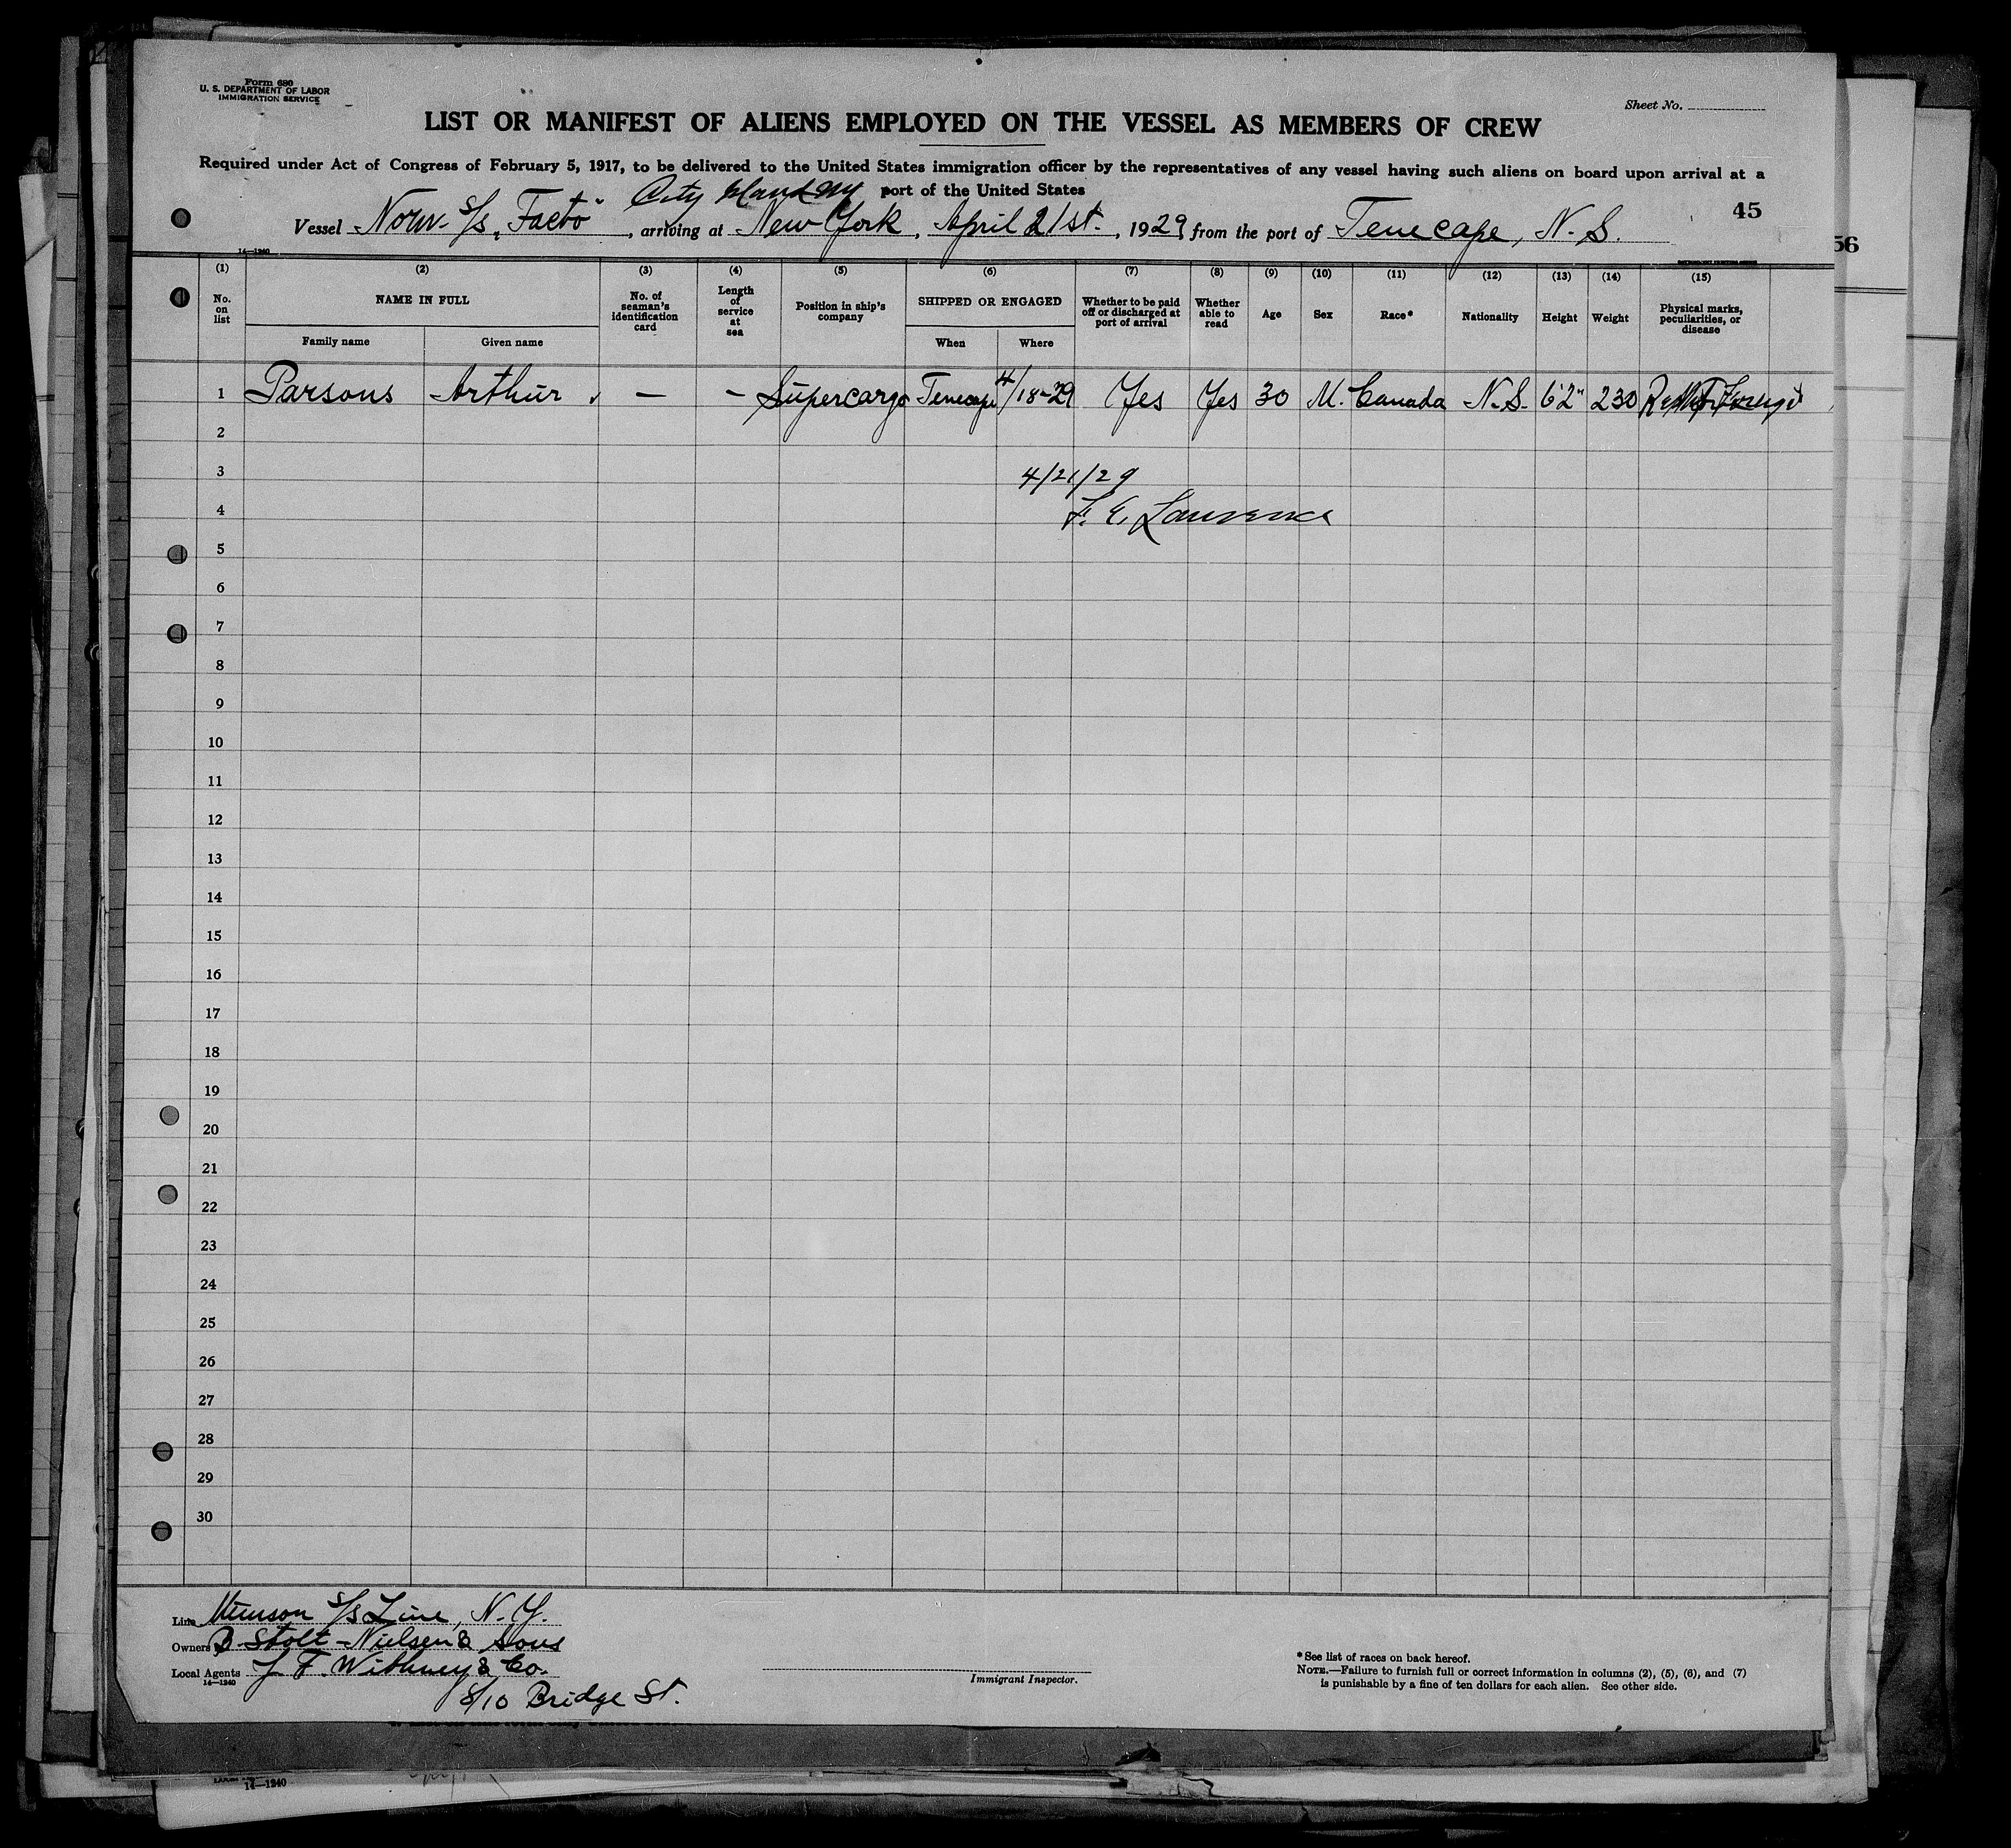 Form 680
U. S. DEPARTMENT OF LABOR
IMMIGRATION SERVICE
Sheet No.
LIST OR MANIFEST OF ALIENS EMPLOYED ON THE VESSEL AS MEMBERS OF CREW
Required under Act of Congress of February 5, 1917, to be delivered to the United States immigration officer by the representatives of any vessel having such aliens on board upon arrival at a
City Island NY port of the United States
45
Vessel Norw. S/S "Facto", arriving at New York, April 21st., 1929, from the port of Tenecape, N. S.
56
14—1240
(1) (2) (3) (4) (5) (6) (7) (8) (9) (10) (11) (12) (13) (14) (15)
No. on list NAME IN FULL No. of seaman's identification card Length of service at sea Position in ship's company SHIPPED OR ENGAGED Whether to be paid off or discharged at port of arrival Whether able to read Age Sex Race* Nationality Height Weight Physical marks, peculiarities, or disease
Family name Given name When Where
1 Parsons Arthur — — Supercargo Tenecape 4/18-29 Yes Yes 30 M. Canada N.S. 6'2" 230
2
3 4/21/29
4 F. E. Lawrence
5
6
7
8
9
10
11
12
13
14
15
16
17
18
19
20
21
22
23
24
25
26
27
28
29
30
Line Munson S/S Line, N. Y.
Owners B. Stolt-Nielsen & Sons
Local Agents J. F. Withney & Co.
14—1240
8/10 Bridge St.
Immigrant Inspector.
*See list of races on back hereof.
NOTE.—Failure to furnish full or correct information in columns (2), (5), (6), and (7)
is punishable by a fine of ten dollars for each alien. See other side.
14—1240